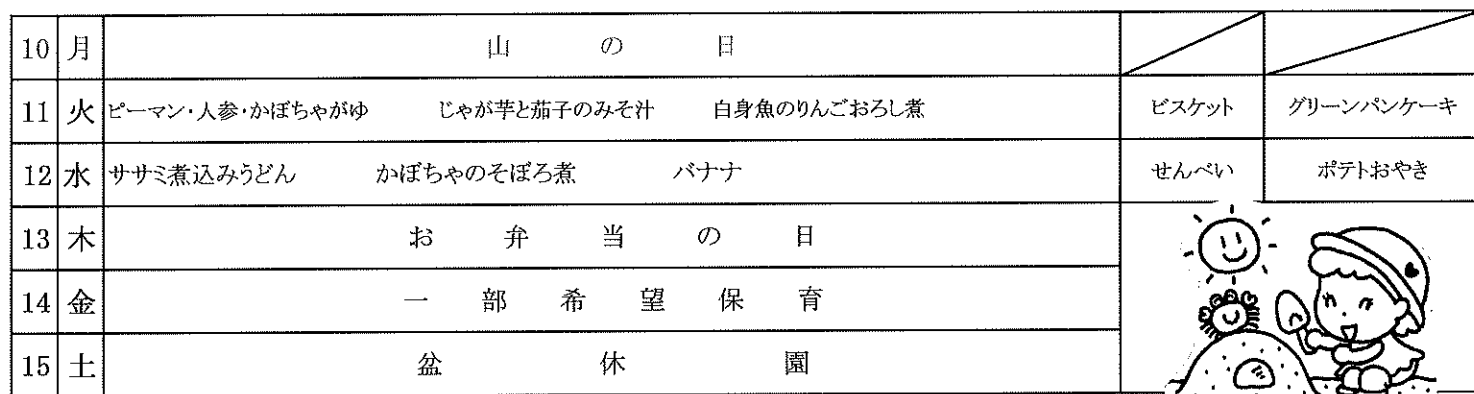 10 月 山の日
11 火 ピーマン・人参・かぼちゃがゆ じゃが芋と茄子のみそ汁 白身魚のりんごおろし煮 ビスケット グリーンパンケーキ
12 水 ササミ煮込みうどん かぼちゃのそぼろ煮 バナナ せんべい ポテトおやき
13 木 お弁当の日
14 金 一部希望保育
15 土 盆休園